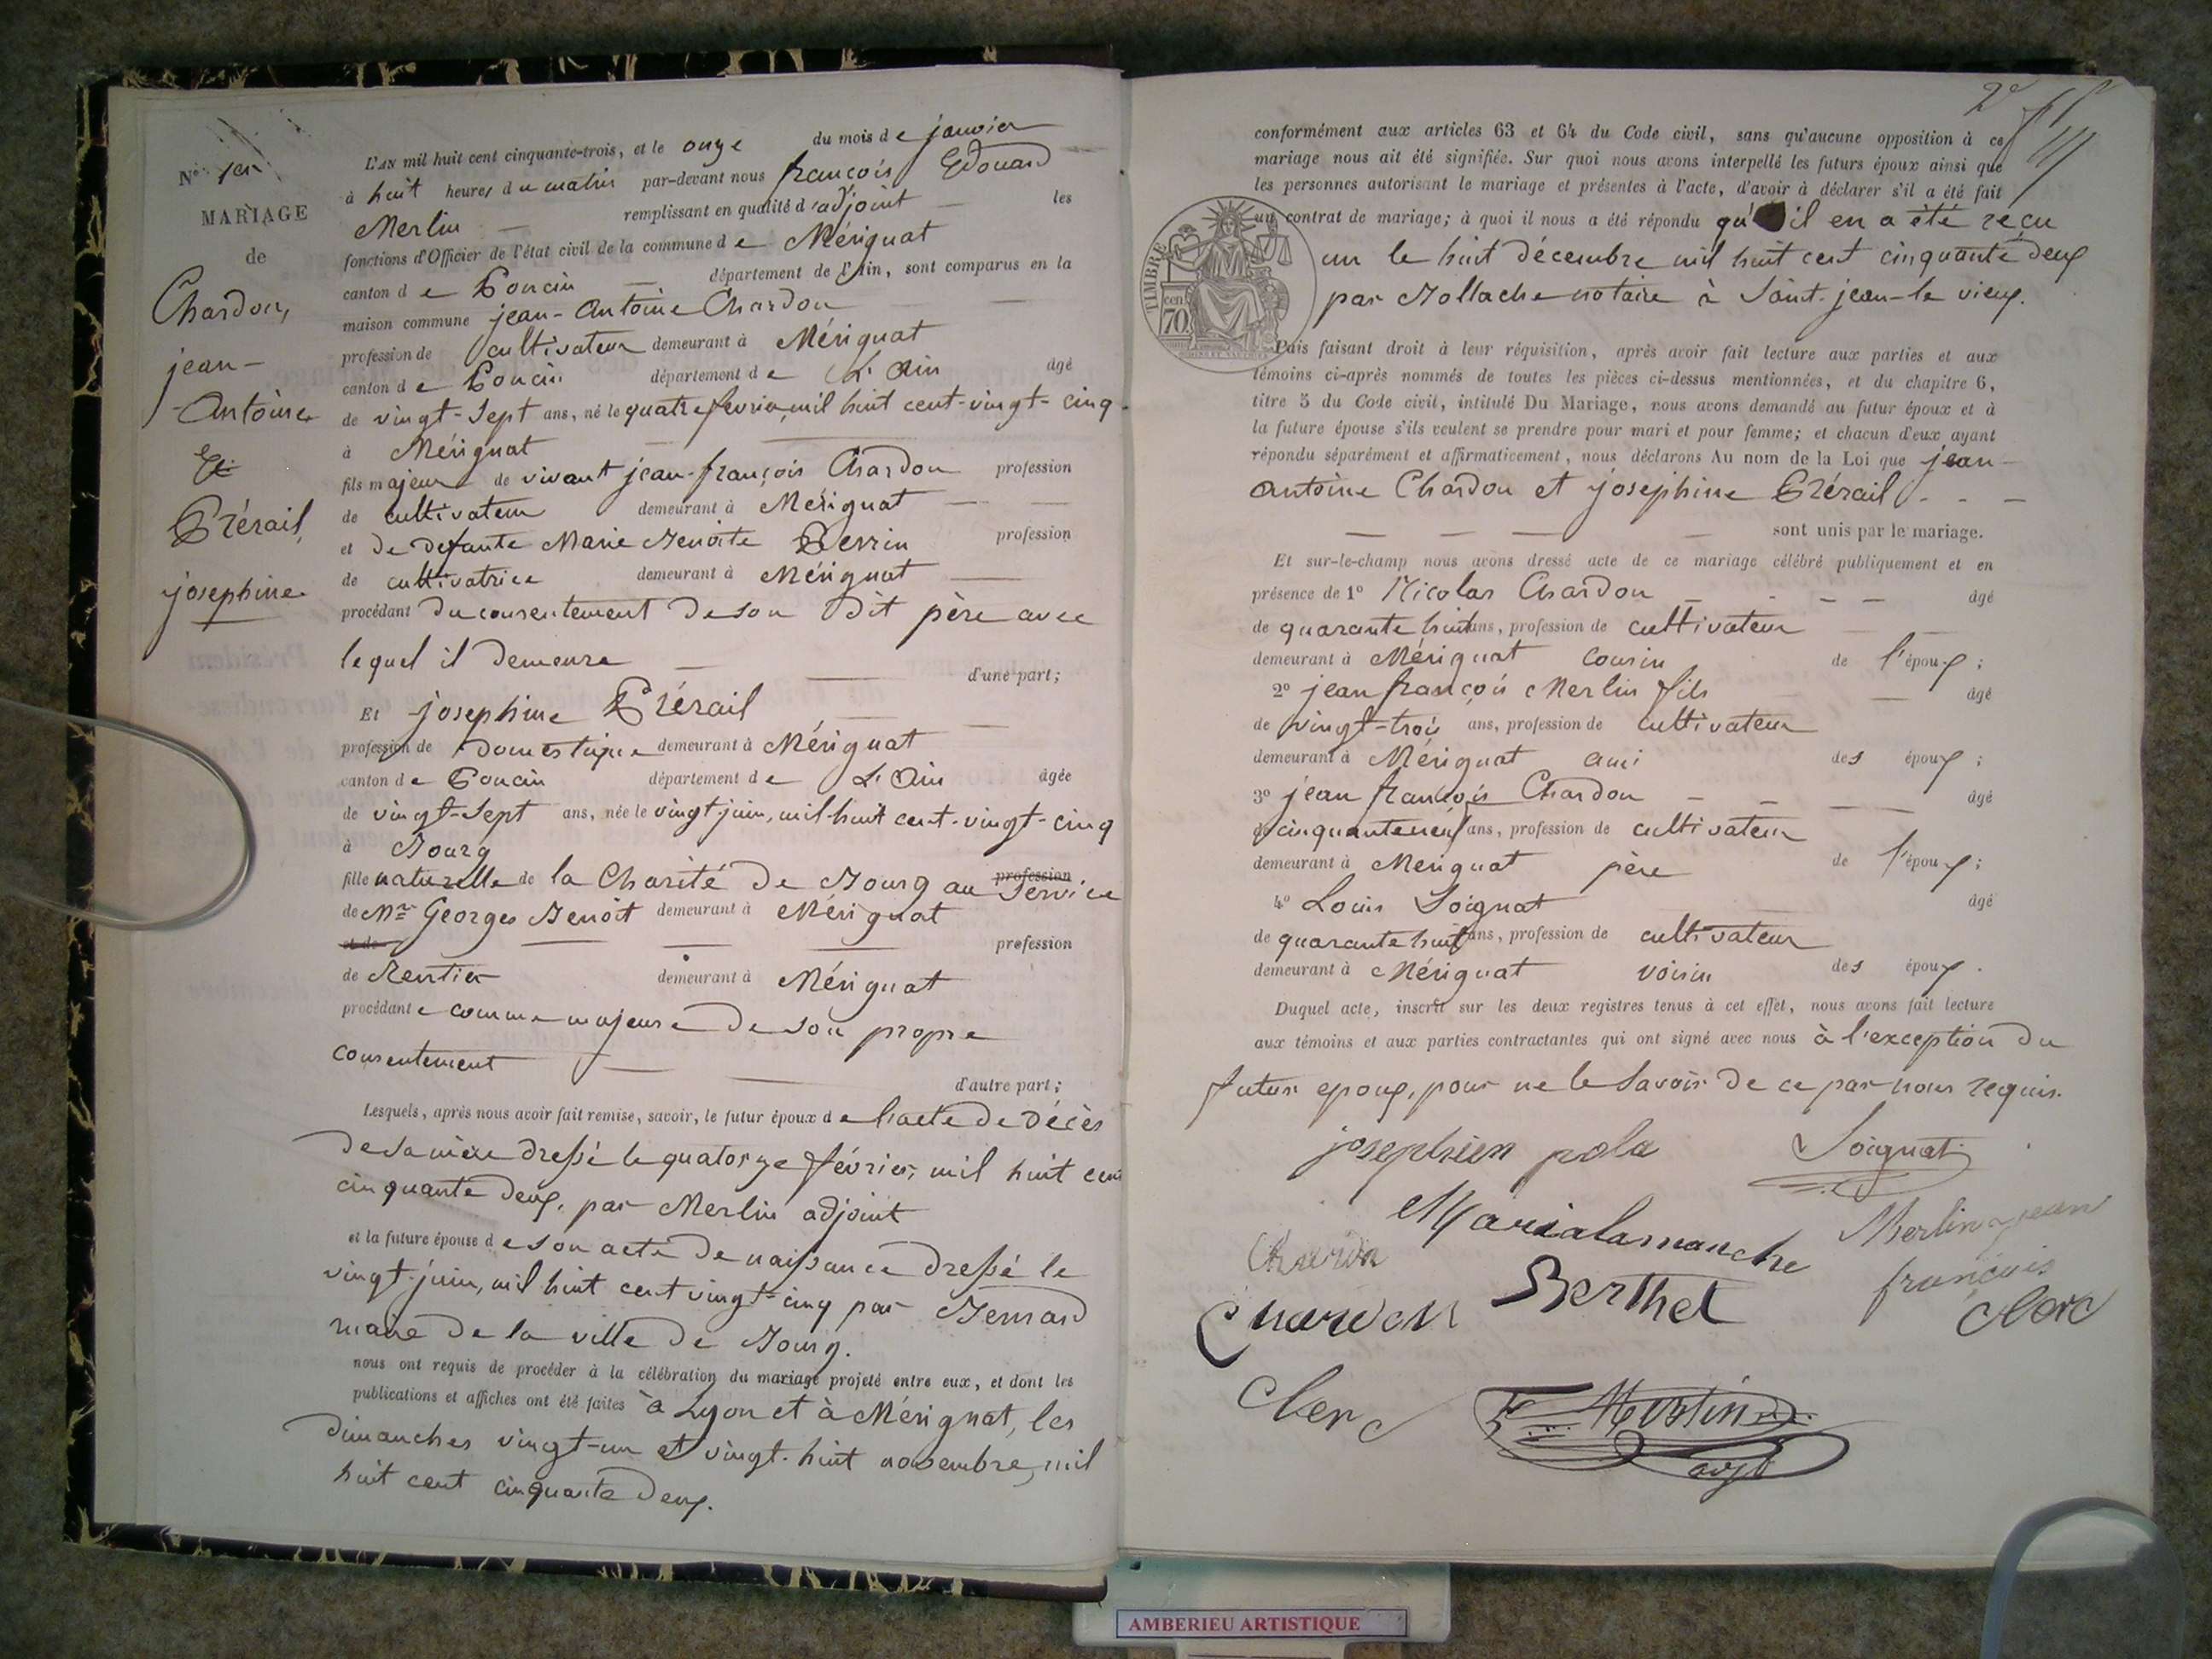 N° 1er
MARIAGE
de
Chardon,
jean-
Antoine
Et
Prérail,
josephine
L'AN mil huit cent cinquante-trois, et le onze du mois de janvier
à huit heures du matin par-devant nous françois Edouard
Merlin remplissant en qualité d'adjoint les
fonctions d'Officier de l'état civil de la commune de Mérignat
canton de Poncin département de l'Ain, sont comparus en la
maison commune jean-Antoine Chardon
profession de cultivateur demeurant à Mérignat
canton de Poncin département de L'Ain âgé
de vingt-sept ans, né le quatre fevrier mil huit cent-vingt-cinq
à Mérignat
fils majeur de vivant jean-françois Chardon profession
de cultivateur demeurant à Mérignat
et de defunte Marie Benoite Perrin profession
de cultivatrice demeurant à Mérignat
procédant du consentement de son dit père avec
lequel il demeure
d'une part;
Et josephine Prérail
profession de domestique demeurant à Mérignat
canton de Poncin département de L'Ain âgée
de vingt-sept ans, née le vingt juin, mil huit cent-vingt-cinq
à Bourg
fille naturelle de la Charité de Bourg au profession service
de Mr Georges Benoît demeurant à Mérignat
et de profession
de Rentier demeurant à Mérignat
procédante comme majeure de son propre
consentement
d'autre part;
Lesquels, après nous avoir fait remise, savoir, le futur époux de l'acte de décès
de sa mère dressé le quatorze février, mil huit cent
cinquante deux, par Merlin adjoint
et la future épouse de son acte de naissance dressé le
vingt-juin, mil huit cent vingt-cinq par Bernard
maire de la ville de Bourg.
nous ont requis de procéder à la célébration du mariage projeté entre eux, et dont les
publications et affiches ont été faites à Lyon et à Mérignat, les
dimanches vingt-un et vingt-huit novembre, mil
huit cent cinquante deux.
conformément aux articles 63 et 64 du Code civil, sans qu'aucune opposition à ce
mariage nous ait été signifiée. Sur quoi nous avons interpellé les futurs époux ainsi que
les personnes autorisant le mariage et présentes à l'acte, d'avoir à déclarer s'il a été fait
un contrat de mariage; à quoi il nous a été répondu qu'il en a été reçu
un le huit décembre mil huit cent cinquante deux
par Bollache notaire à Saint-jean-le vieux.
TIMBRE
cen
70
Puis faisant droit à leur réquisition, après avoir fait lecture aux parties et aux
témoins ci-après nommés de toutes les pièces ci-dessus mentionnées, et du chapitre 6,
titre 5 du Code civil, intitulé Du Mariage, nous avons demandé au futur époux et à
la future épouse s'ils veulent se prendre pour mari et pour femme; et chacun d'eux ayant
répondu séparément et affirmativement, nous déclarons Au nom de la Loi que jean-
Antoine Chardon et josephine Prérail
sont unis par le mariage.
Et sur-le-champ nous avons dressé acte de ce mariage célébré publiquement et en
présence de 1° Nicolas Chardon âgé
de quarante huit ans, profession de cultivateur
demeurant à Mérignat cousin de l'époux;
2° jean françois Merlin fils âgé
de vingt-trois ans, profession de cultivateur
demeurant à Mérignat ami des époux;
3° jean françois Chardon âgé
de cinquante neuf ans, profession de cultivateur
demeurant à Mérignat père de l'époux;
4° Louis Soignat âgé
de quarante huit ans, profession de cultivateur
demeurant à Mérignat voisin des époux.
Duquel acte, inscrit sur les deux registres tenus à cet effet, nous avons fait lecture
aux témoins et aux parties contractantes qui ont signé avec nous à l'exception du
futur epoux, pour ne le savoir de ce par nous requis.
Soignat
Merlin jean
françois
Chardon
Berthet
Chardon
Clerc
Clerc
Merlin
adjt
AMBERIEU ARTISTIQUE